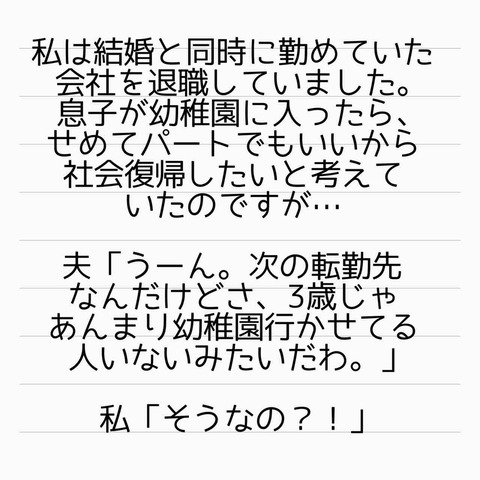 私は結婚と同時に勤めていた
会社を退職していました。
息子が幼稚園に入ったら、
せめてパートでもいいから
社会復帰したいと考えて
いたのですが…
夫「うーん。次の転勤先
なんだけどさ、3歳じゃ
あんまり幼稚園行かせてる
人いないみたいだわ。」
私「そうなの？！」